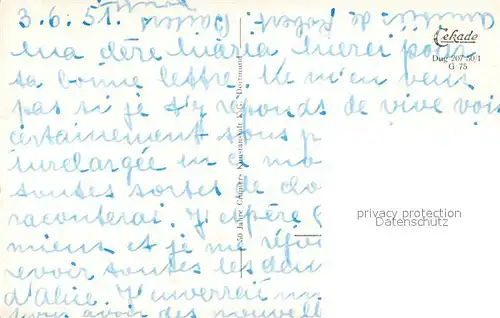 3.6.51.
Ma chère Maria Merci pour
ta bonne lettre. Ne m'en veux
pas si je t'y réponds de vive voix
certainement tous p
surchargée en ce mo
toutes sortes de cho
raconterai. J'espère
mieux et je me réjoui
revoir toutes les deux
d'Alice. J'enverrai un
pour avoir des nouvelle
Cekade
Dug 207 50/1
G 75
50 Jahre Cramers Kunstanstalt KG., Dortmund
privacy protection
Datenschutz